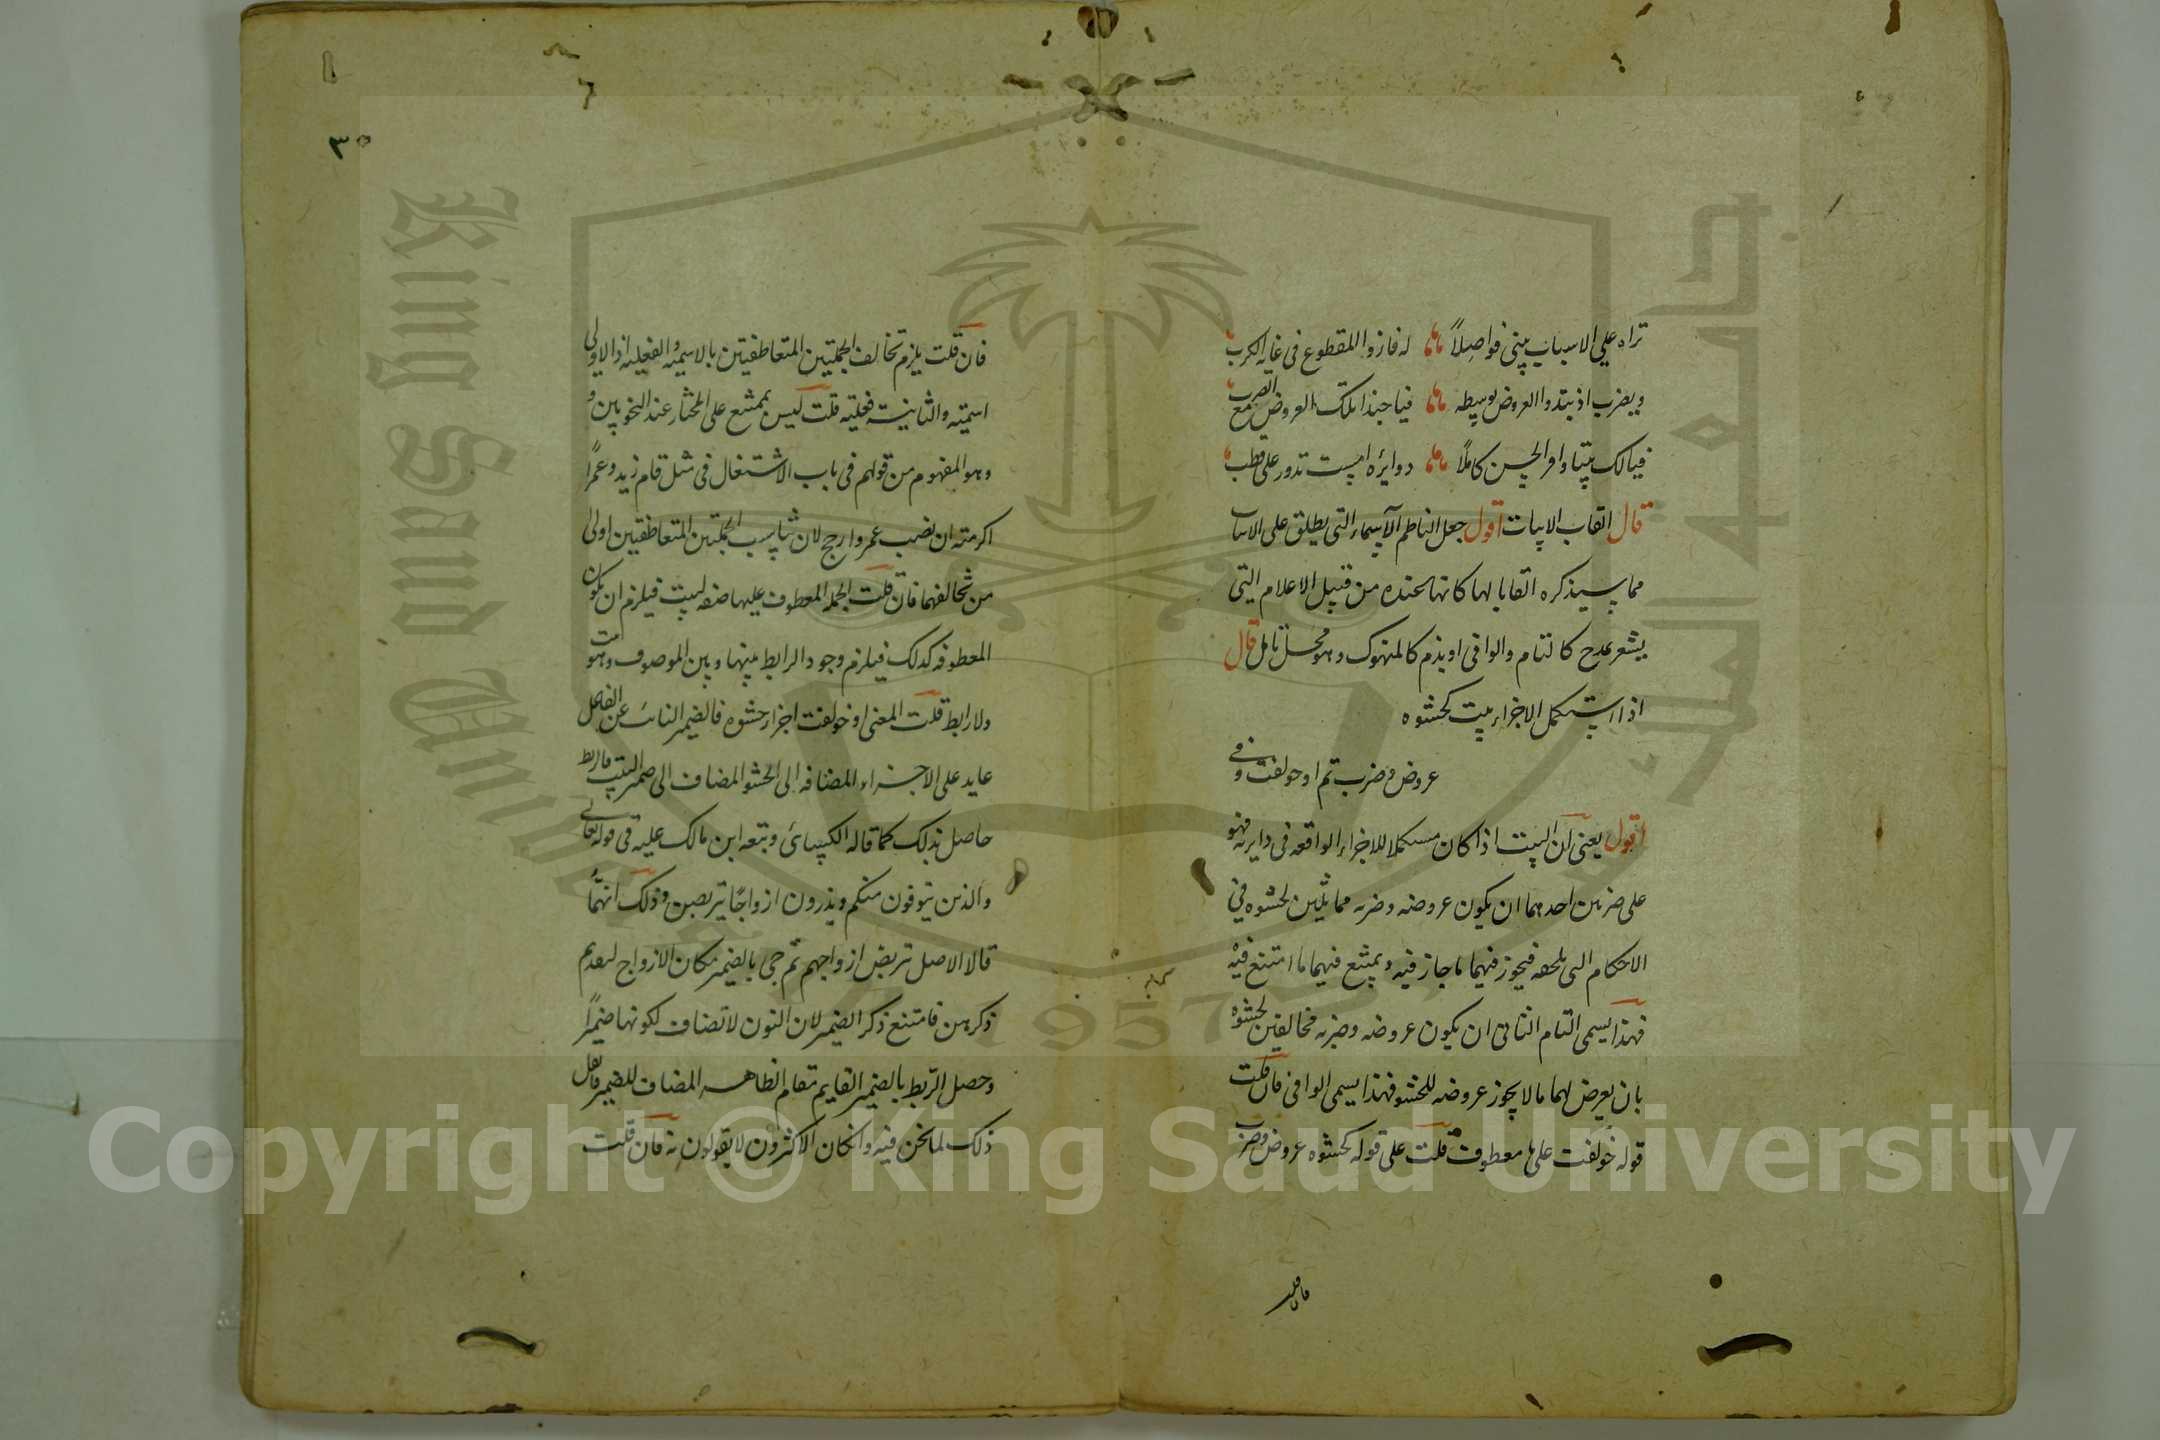 تراه على الاسباب يبنى فواصلا له فاز واللمقطوع فى غاية الكرب
ويضرب اذ يبتدوا العروض بوسطه فيا حبذا تلك العروض مع الضرب
فيالك بيتا وافر الحسن كاملا دوايره امست تدور على قطب
قال القاب الابيات اقول جعل الناظم الاسماء التى يطلق على الابيات
مما سيذكره القابا لها كانها عنده من قبيل الاعلام التى
يشعر بمدح كالتام والوافى او بذم كالمنهوك وهو محل تامل قال
اذا استكمل الاجزاء بيت كحشوه
عروض وضرب تم او خولفت وفى
اقول يعنى ان البيت اذا كان مستكملا للاجزاء الواقعة فى دايرته فهو
على ضربين احدهما ان يكون عروضه وضربه مماثلين لحشوه فى
الاحكام التى تلحقه فيجوز فيهما ما جاز فيه ويمتنع فيهما ما امتنع فيه
فهذا يسمى التام الثانى ان يكون عروضه وضربه مخالفين لحشوه
بان يعرض لهما ما لا يجوز عروضه للحشو فهذا يسمى الوافى فان قلت
قوله خولفت على ما معطوف قلت على قوله كحشوه عروض وضرب
فان قلت
٣٠
فان قلت يلزم تخالف الجملتين المتعاطفتين بالاسمية والفعلية اذ الاولى
اسمية والثانية فعلية قلت ليس بممتنع على المختار عند النحويين و
وهو المفهوم من قولهم فى باب الاشتغال فى مثل قام زيد وعمرا
اكرمته ان نصب عمرو ارجح لان تناسب الجملتين المتعاطفتين اولى
من تخالفهما فان قلت الجملة المعطوف عليها صفة لبيت فيلزم ان تكون
المعطوفة كذلك فيلزم وجود الرابط بينها وبين الموصوف وهو بيت
ولا رابط قلت المعنى او خولفت اجزاء حشوه فالضمير النائب عن الفاعل
عايد على الاجزاء المضافه الى الحشو المضاف الى ضمير البيت فالربط
حاصل بذلك كما قاله الكسائى وتبعه ابن مالك عليه فى قوله تعالى
والذين يتوفون منكم ويذرون ازواجا يتربصن وذلك انهما
قالا الاصل تربص ازواجهم ثم جئ بالضمير مكان الازواج لتقدم
ذكرهن فامتنع ذكر الضمير لان النون لا تضاف لكونها ضميرا
وحصل الربط بالضمير القايم مقام الظاهر المضاف للضمير فانقل
ذلك لما نحن فيه وان كان الاكثرون لا يقولون به فان قلت
Copyright © King Saud University
King Saud University
جامعة الملك
1957